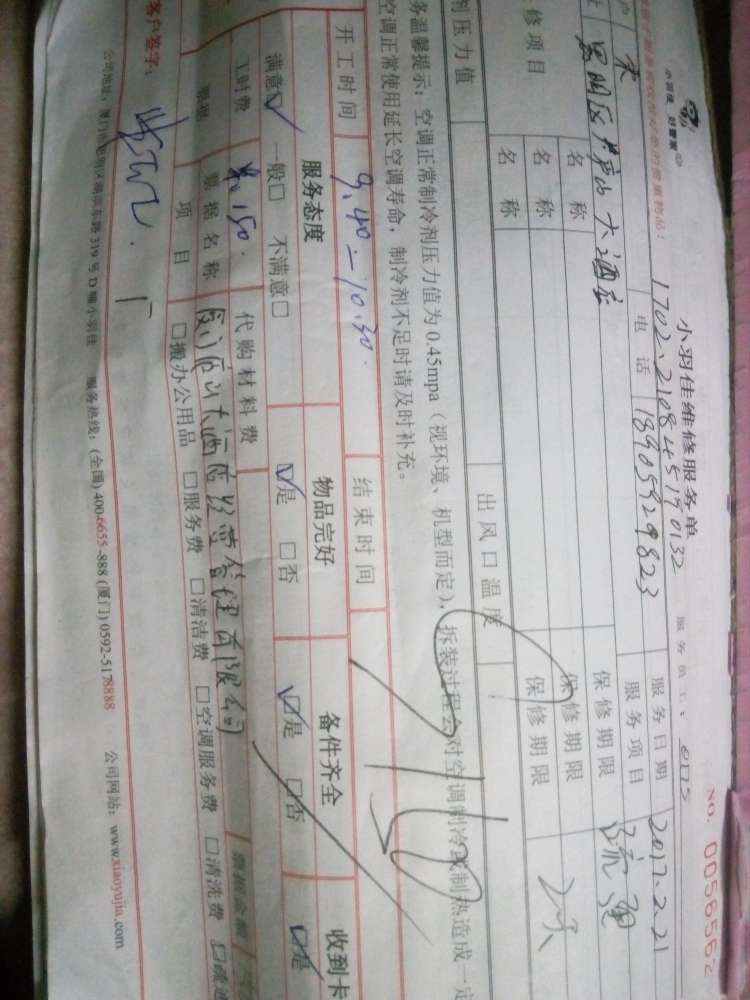 小羽佳 好管家
小羽佳维修服务单
NO. 005656
1702.210845190132
服务员工: 0175
户 宋
电话 18905929823
服务日期 2017.2.21
址 思明区庐山大酒店
服务项目 疏通
名称
保修期限
修项目
名称
保修期限
名称
保修期限
剂压力值
出风口温度
务温馨提示：空调正常制冷剂压力值为0.45mpa（视环境、机型而定），拆装过程会对空调制冷或制热造成一定
空调正常使用延长空调寿命，制冷剂不足时请及时补充。
开工时间 9.40-10.30.
结束时间
服务态度
物品完好
备件齐全
收到卡
满意☑ 一般□ 不满意□
☑是 □否
☑是 □否
☑是
工时费 150.
代购材料费
票据
票据名称
大酒店经营管理有限公司
票据金额
项目
□搬办公用品 □服务费 □清洁费 □空调服务费 □清洗费 □疏通
客户签字：
公司地址：厦门市思明区湖滨东路319号D幢小羽佳 服务热线：(全国) 400-6655-888 (厦门) 0592-5178888 公司网站：www.xiaoyujia.com